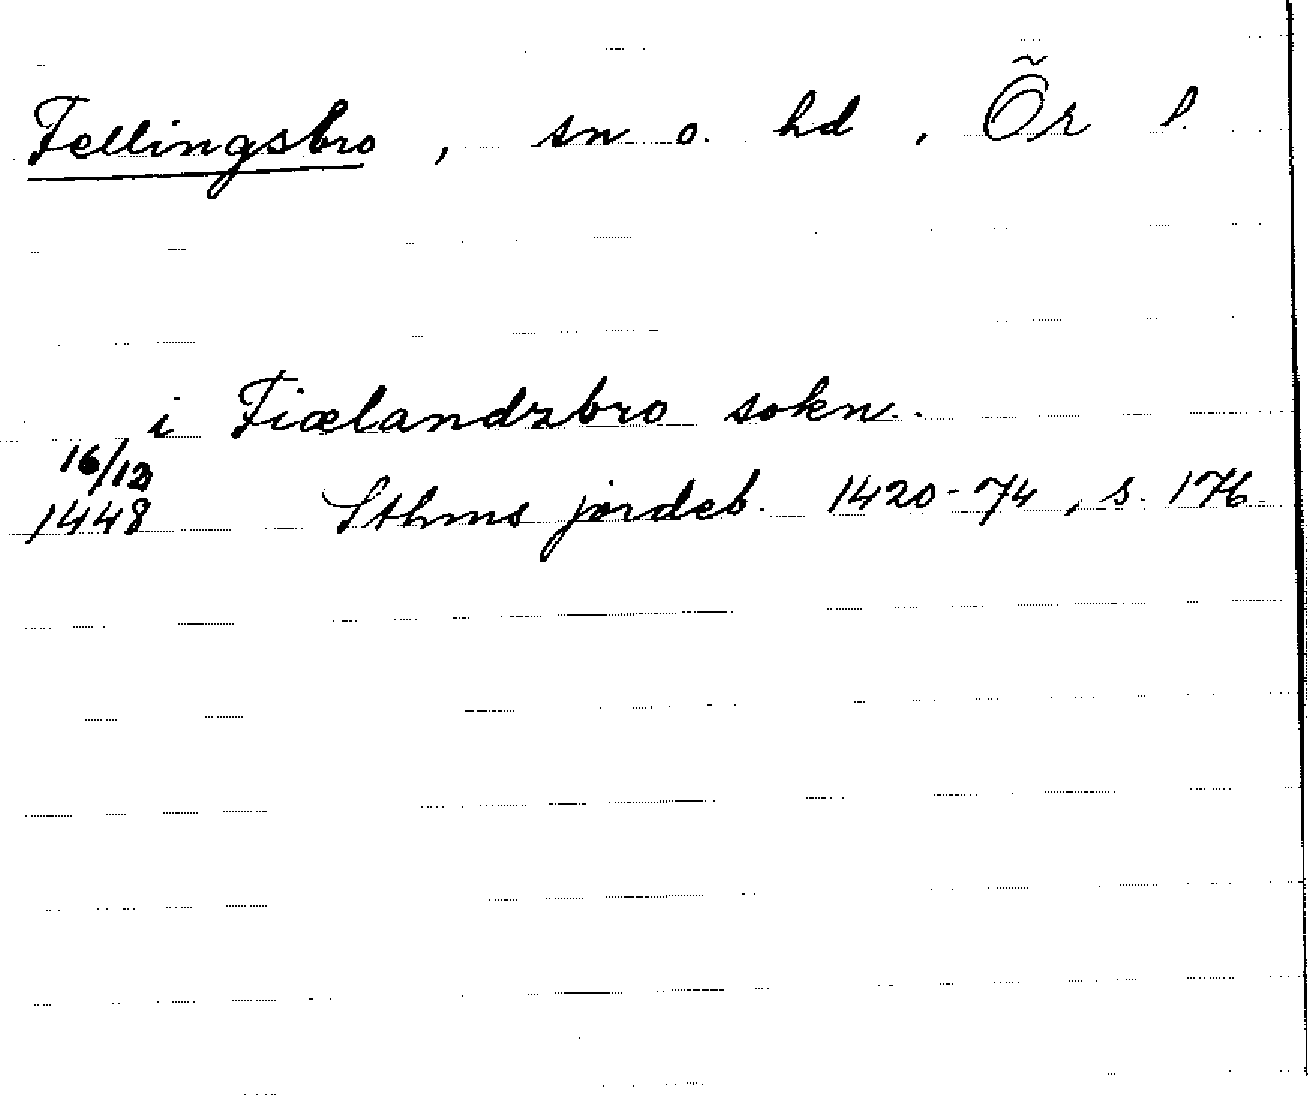 Fellingsbro, sn o. hd, Ör l.
i Fiælandzbro sokn.
16/12
1448 Sthms jordeb. 1420-74, s. 176